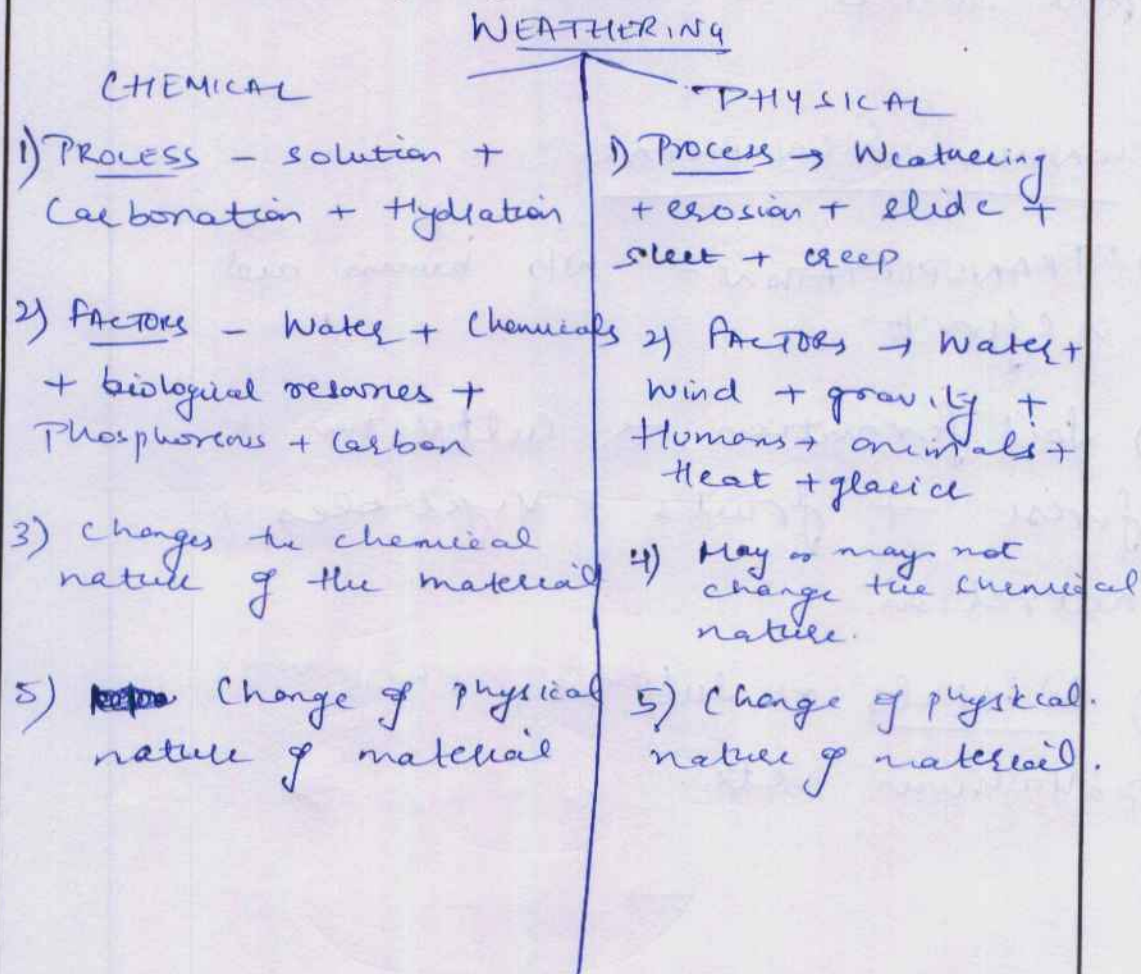 WEATHERING
CHEMICAL
1) PROCESS - solution +
Carbonation + Hydration
2) FACTORS - Water + Chemicals
+ biological +
Phosphorous + carbon
3) Changes the chemical
nature of the material
5) Change of physical
nature of material
PHYSICAL
1) Process → Weathering
+ erosion + slide +
sleet + creep
2) FACTORS → Water +
wind + gravity +
Humans + animals +
Heat + glacier
4) May or may not
change the chemical
nature.
5) Change of physical.
nature of material.